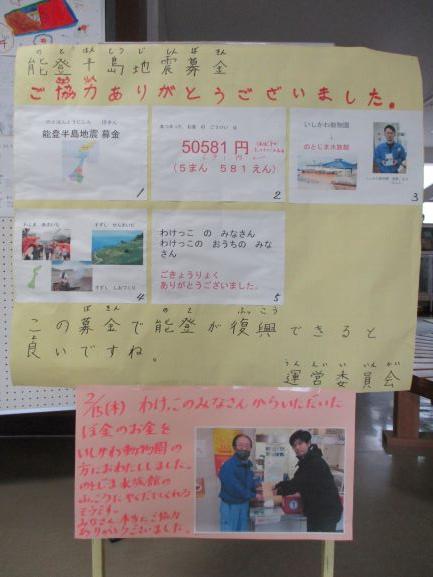 のとはんとうじしんぼきん
能登半島地震募金
ご協力ありがとうございました。
能登半島地震 募金
1
あつまった お金 の ごうけい は
50581 円
(5まん 581えん)
2
いしかわ動物園
のとじま水族館
3
わじま あさいち
すずし せんまいだ
すずし しおづくり
4
わけっこ の みなさん
わけっこの おうちの みな
さん
ごきょうりょく
ありがとうございました。
5
ぼきん のと ふっこう
この募金で能登が復興できると
良いですね。
うんえいいいんかい
運営委員会
2/15(木) わけっこのみなさんからいただいた
ぼ金のお金を
いしかわ動物園の
方におわたししました。
のとじま水族館の
ふっこうに やくだててくれる
そうです。
みなさん 本当にご協力
ありがとうございました。